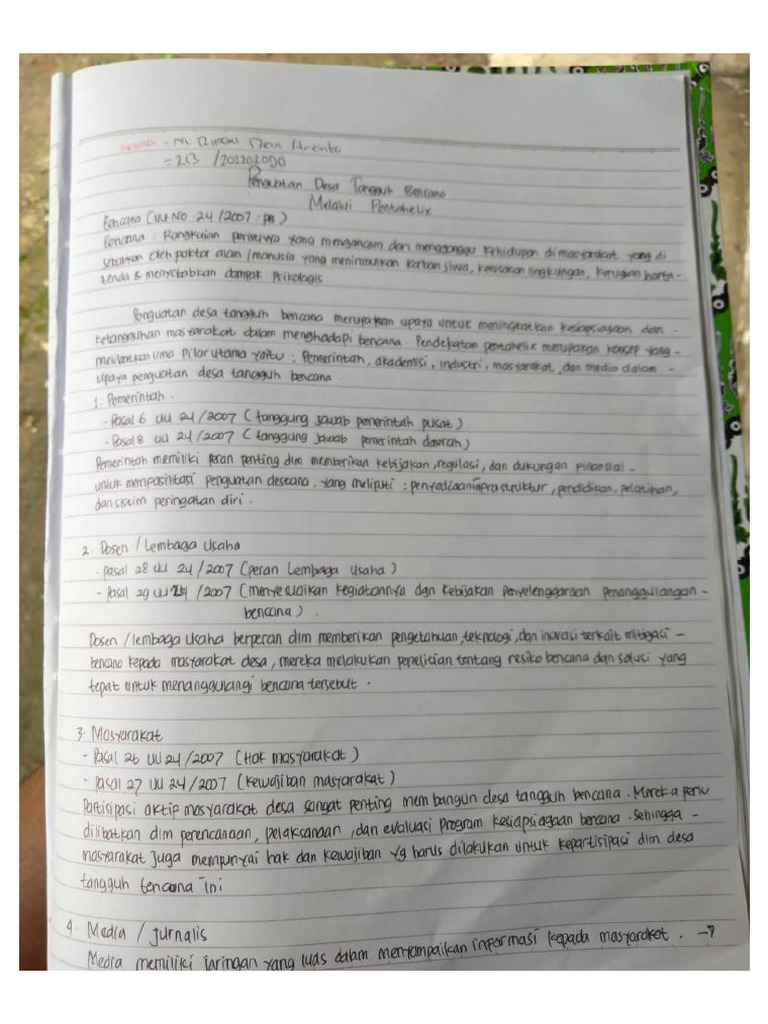 Nama : M. Dian Arento
= 2B / 202202090
Penguatan Desa Tangguh Bencana
Melalui Pentahelix
Bencana (UU No 24/2007 : ps 1)
Bencana : Rangkaian peristiwa yang mengancam dan mengganggu kehidupan di masyarakat yang di
sebabkan oleh faktor alam /manusia yang menimbulkan korban jiwa, kerusakan lingkungan, kerugian harta-
benda & menyebabkan dampak Psikologis
Penguatan desa tangguh bencana merupakan upaya untuk meningkatkan kesiapsiagaan dan -
ketangguhan masyarakat dalam menghadapi bencana. Pendekatan pentahelix merupakan konsep yang -
melibatkan lima pilar utama yaitu : Pemerintah, akademisi, industri, masyarakat, dan media dalam -
upaya penguatan desa tangguh bencana.
1. Pemerintah.
- Pasal 6 UU 24/2007 (tanggung jawab pemerintah pusat)
- Pasal 8 UU 24/2007 (tanggung jawab pemerintah daerah)
Pemerintah memiliki peran penting dlm memberikan kebijakan, regulasi, dan dukungan finansial -
untuk mempasilitasi penguatan destana. yang meliputi : penyediaan inprastruktur, pendidikan, pelatihan,
dan sistim peringatan diri.
2. Dosen / Lembaga Usaha
- pasal 28 UU 24/2007 (peran Lembaga Usaha)
- Pasal 29 UU 24 /2007 (menyesuaikan kegiatannya dgn kebijakan penyelenggaraan penanggulangan -
bencana).
Dosen / lembaga usaha berperan dlm memberikan pengetahuan, teknologi, dan inovasi terkait mitigasi -
bencana kepada masyarakat desa, mereka melakukan penelitian tentang resiko bencana dan solusi yang
tepat untuk menanggulangi bencana tersebut.
3. Masyarakat
- Pasal 26 UU 24/2007 (Hak masyarakat)
- Pasal 27 UU 24/2007 (Kewajiban masyarakat)
Partisipasi aktip masyarakat desa sangat penting membangun desa tangguh bencana. Mereka perlu
dilibatkan dlm perencanaan, pelaksanaan, dan evaluasi program kesiapsiagaan bencana. Sehingga -
masyarakat juga mempunyai hak dan kewajiban yg harus dilakukan untuk kepartisipasi dlm desa
tangguh bencana ini
4. Media / Jurnalis
Media memiliki jaringan yang luas dalam menyampaikan informasi kepada masyarakat. →